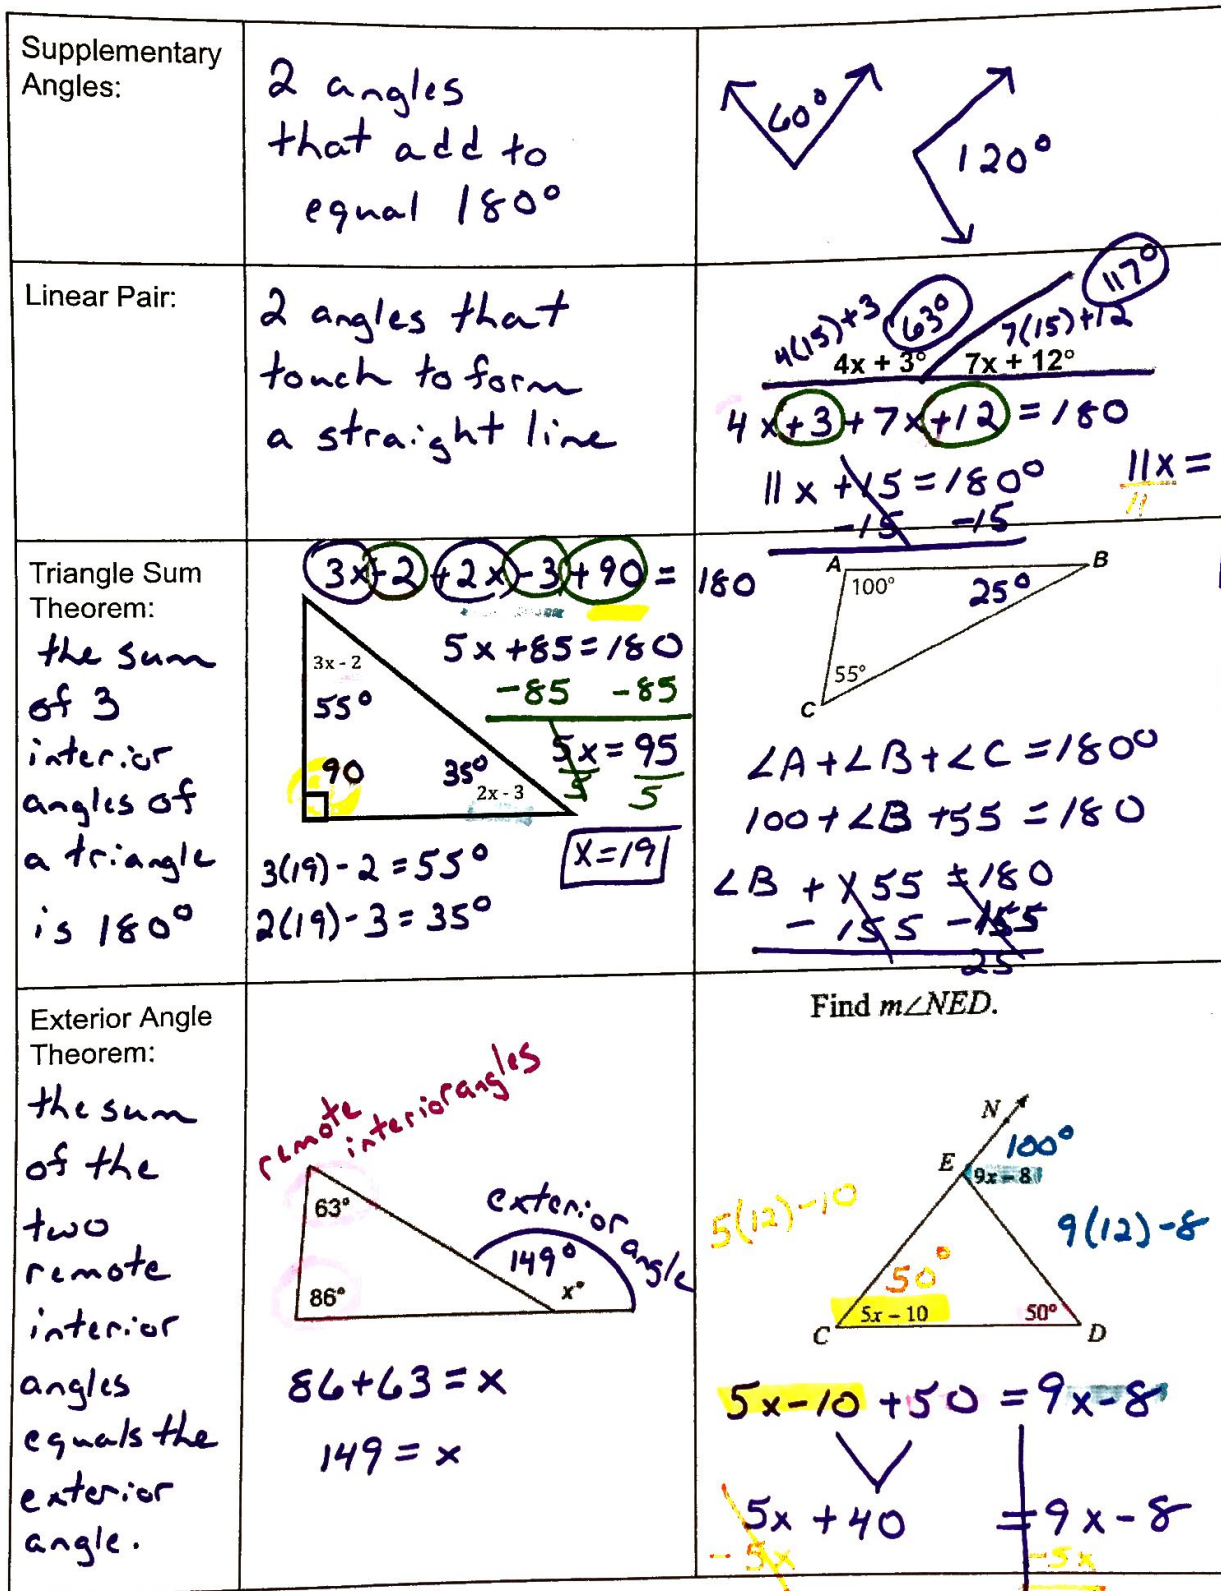 Supplementary
Angles:
2 angles
that add to
equal 180°
60°
120°
Linear Pair:
2 angles that
touch to form
a straight line
4(15)+3
63°
7(15)+12
117°
4x + 3°
7x + 12°
4x+3+7x+12=180
11x+15=180°
-15 -15
11x=
11
Triangle Sum
Theorem:
the sum
of 3
interior
angles of
a triangle
is 180°
3x-2+2x-3+90=180
3x - 2
55°
90
35°
2x - 3
5x+85=180
-85 -85
5x=95
5 5
x=19
3(19)-2=55°
2(19)-3=35°
A
B
100°
25°
55°
C
∠A+∠B+∠C=180°
100+∠B+55=180
∠B+155=180
-155 -155
25
Exterior Angle
Theorem:
the sum
of the
two
remote
interior
angles
equals the
exterior
angle.
remote
interior angles
63°
86°
exterior
angle
149°
x°
86+63=x
149=x
Find m∠NED.
N
100°
E
9x - 8
5(12)-10
9(12)-8
50°
5x - 10
50°
C
D
5x-10+50=9x-8
5x+40=9x-8
-5x -5x